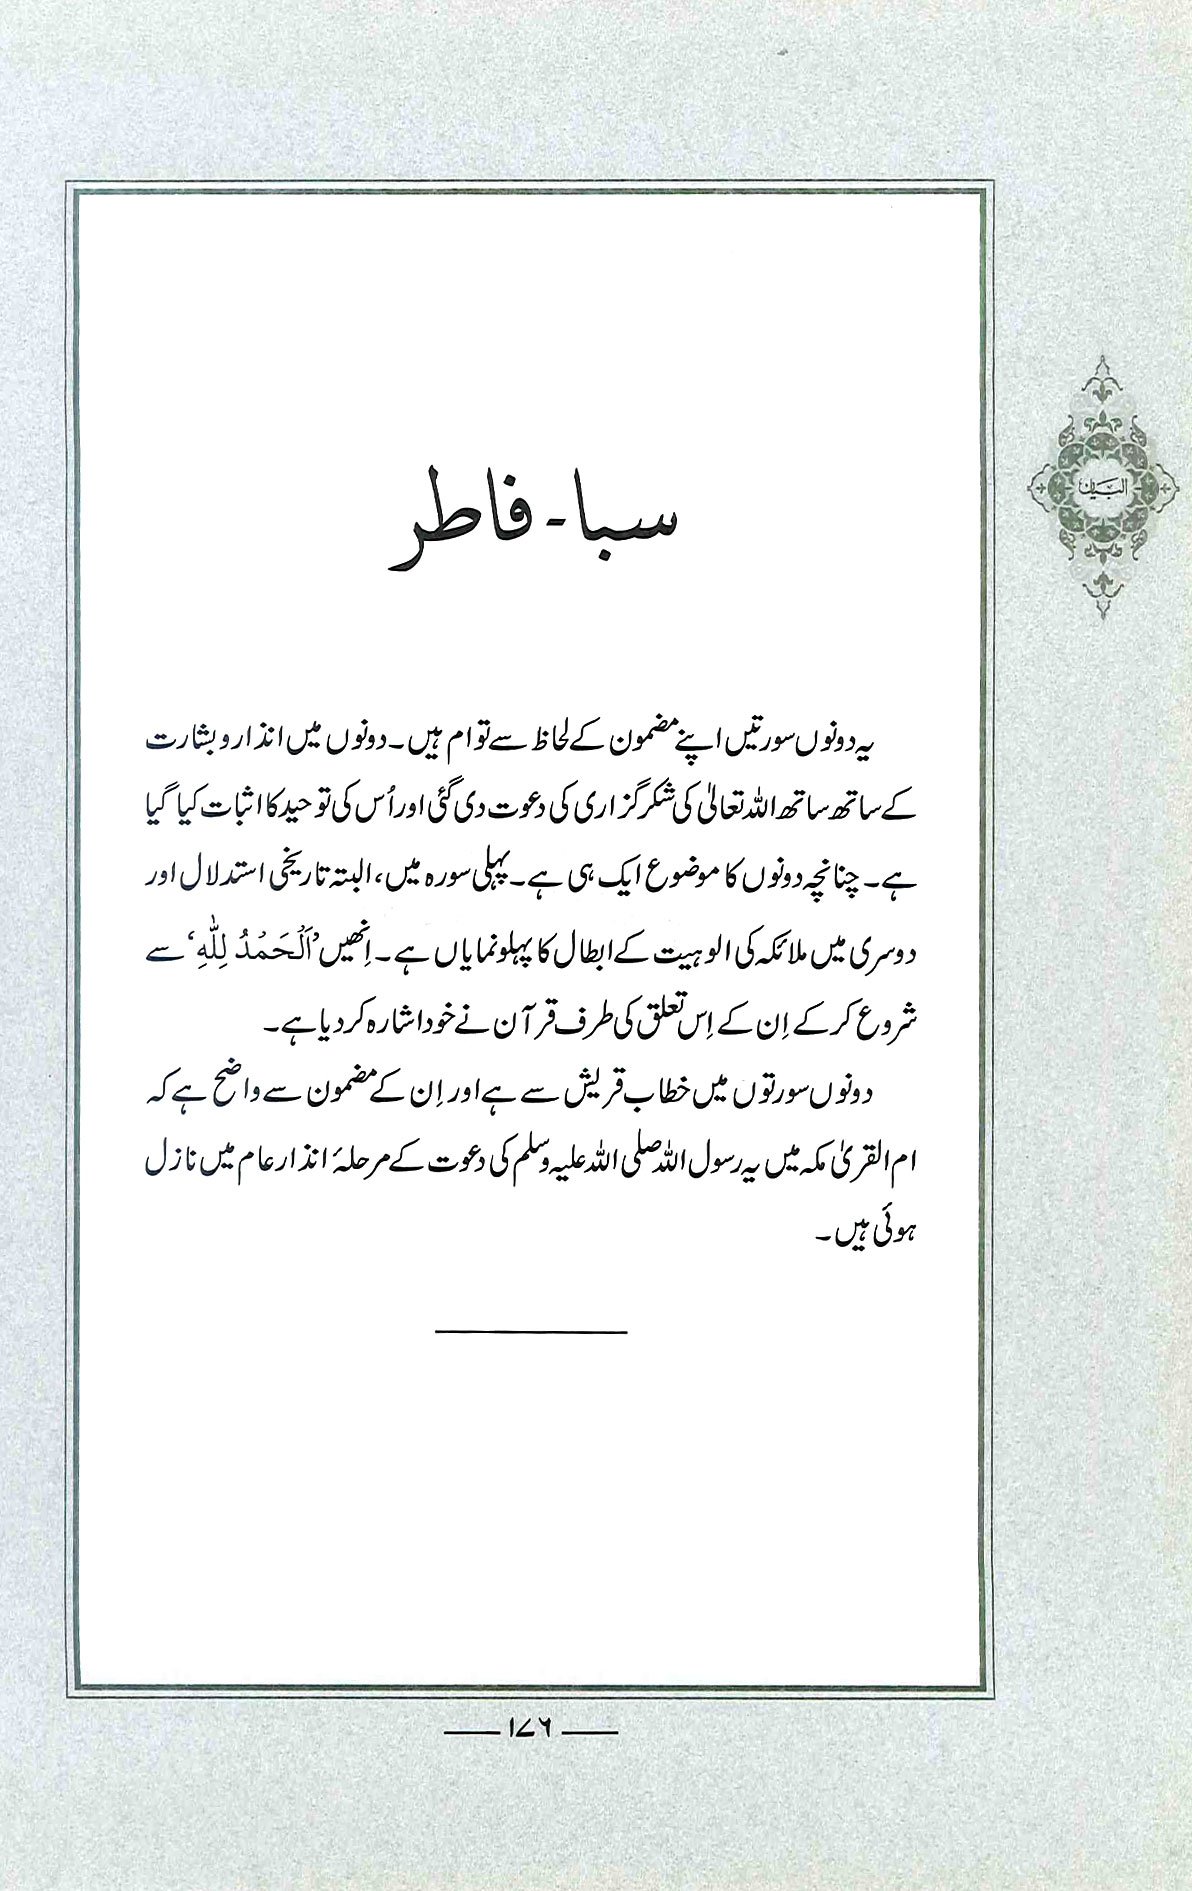 سبا - فاطر
البیان
یہ دونوں سورتیں اپنے مضمون کے لحاظ سے توام ہیں۔ دونوں میں انذار و بشارت
کے ساتھ ساتھ اللہ تعالیٰ کی شکر گزاری کی دعوت دی گئی اور اُس کی توحید کا اثبات کیا گیا
ہے۔ چنانچہ دونوں کا موضوع ایک ہی ہے۔ پہلی سورہ میں، البتہ تاریخی استدلال اور
دوسری میں ملائکہ کی الوہیت کے ابطال کا پہلو نمایاں ہے۔ اِنھیں ’اَلْحَمْدُ لِلّٰهِ‘ سے
شروع کر کے اِن کے اِس تعلق کی طرف قرآن نے خود اشارہ کر دیا ہے۔
دونوں سورتوں میں خطاب قریش سے ہے اور اِن کے مضمون سے واضح ہے کہ
ام القریٰ مکہ میں یہ رسول اللہ صلی اللہ علیہ وسلم کی دعوت کے مرحلۂ انذار عام میں نازل
ہوئی ہیں۔
۱۷۶